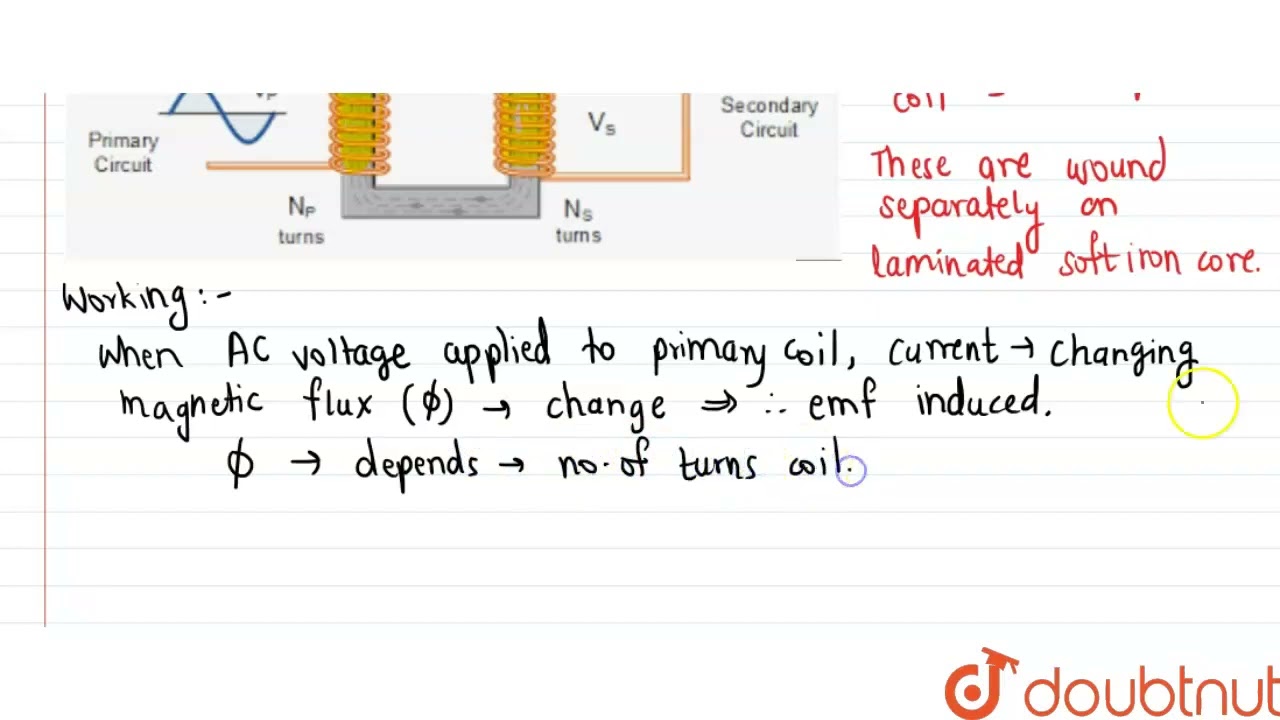 Primary
Circuit
Vs
Secondary
Circuit
NP
turns
NS
turns
coil
These are wound
separately on
laminated soft iron core.
Working :-
When AC voltage applied to primary coil, current → changing
magnetic flux (ϕ) → change ⇒ ∴ emf induced.
ϕ → depends → no. of turns coil.
doubtnut